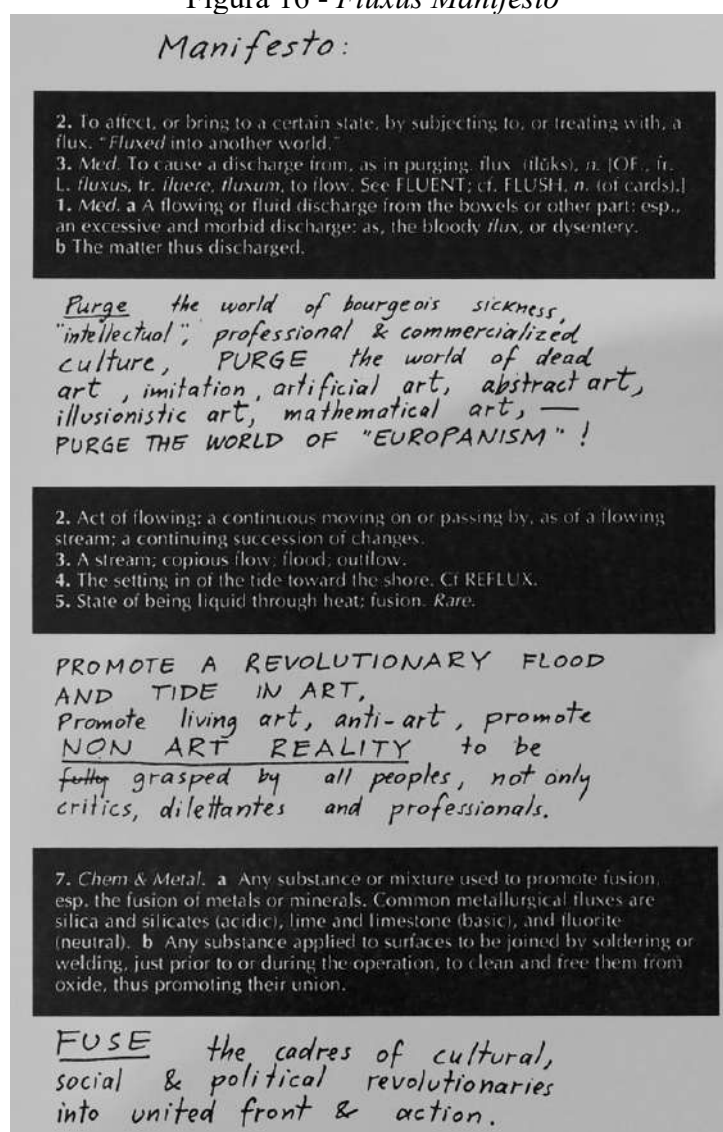 Figura 16 - Fluxus Manifesto
Manifesto:
2. To affect, or bring to a certain state, by subjecting to, or treating with, a
flux. "Fluxed into another world."
3. Med. To cause a discharge from, as in purging. flux (flŭks), n. [OF., fr.
L. fluxus, fr. fluere, fluxum, to flow. See FLUENT; cf. FLUSH, n. (of cards).]
1. Med. a A flowing or fluid discharge from the bowels or other part: esp.,
an excessive and morbid discharge: as, the bloody flux, or dysentery.
b The matter thus discharged.
Purge the world of bourgeois sickness,
"intellectual", professional & commercialized
culture, PURGE the world of dead
art, imitation, artificial art, abstract art,
illusionistic art, mathematical art, —
PURGE THE WORLD OF "EUROPANISM"!
2. Act of flowing: a continuous moving on or passing by, as of a flowing
stream; a continuing succession of changes.
3. A stream; copious flow; flood; outflow.
4. The setting in of the tide toward the shore. Cf REFLUX.
5. State of being liquid through heat; fusion. Rare.
PROMOTE A REVOLUTIONARY FLOOD
AND TIDE IN ART,
Promote living art, anti-art, promote
NON ART REALITY to be
fully grasped by all peoples, not only
critics, dilettantes and professionals.
7. Chem & Metal. a Any substance or mixture used to promote fusion,
esp. the fusion of metals or minerals. Common metallurgical fluxes are
silica and silicates (acidic), lime and limestone (basic), and fluorite
(neutral). b Any substance applied to surfaces to be joined by soldering or
welding, just prior to or during the operation, to clean and free them from
oxide, thus promoting their union.
FUSE the cadres of cultural,
social & political revolutionaries
into united front & action.